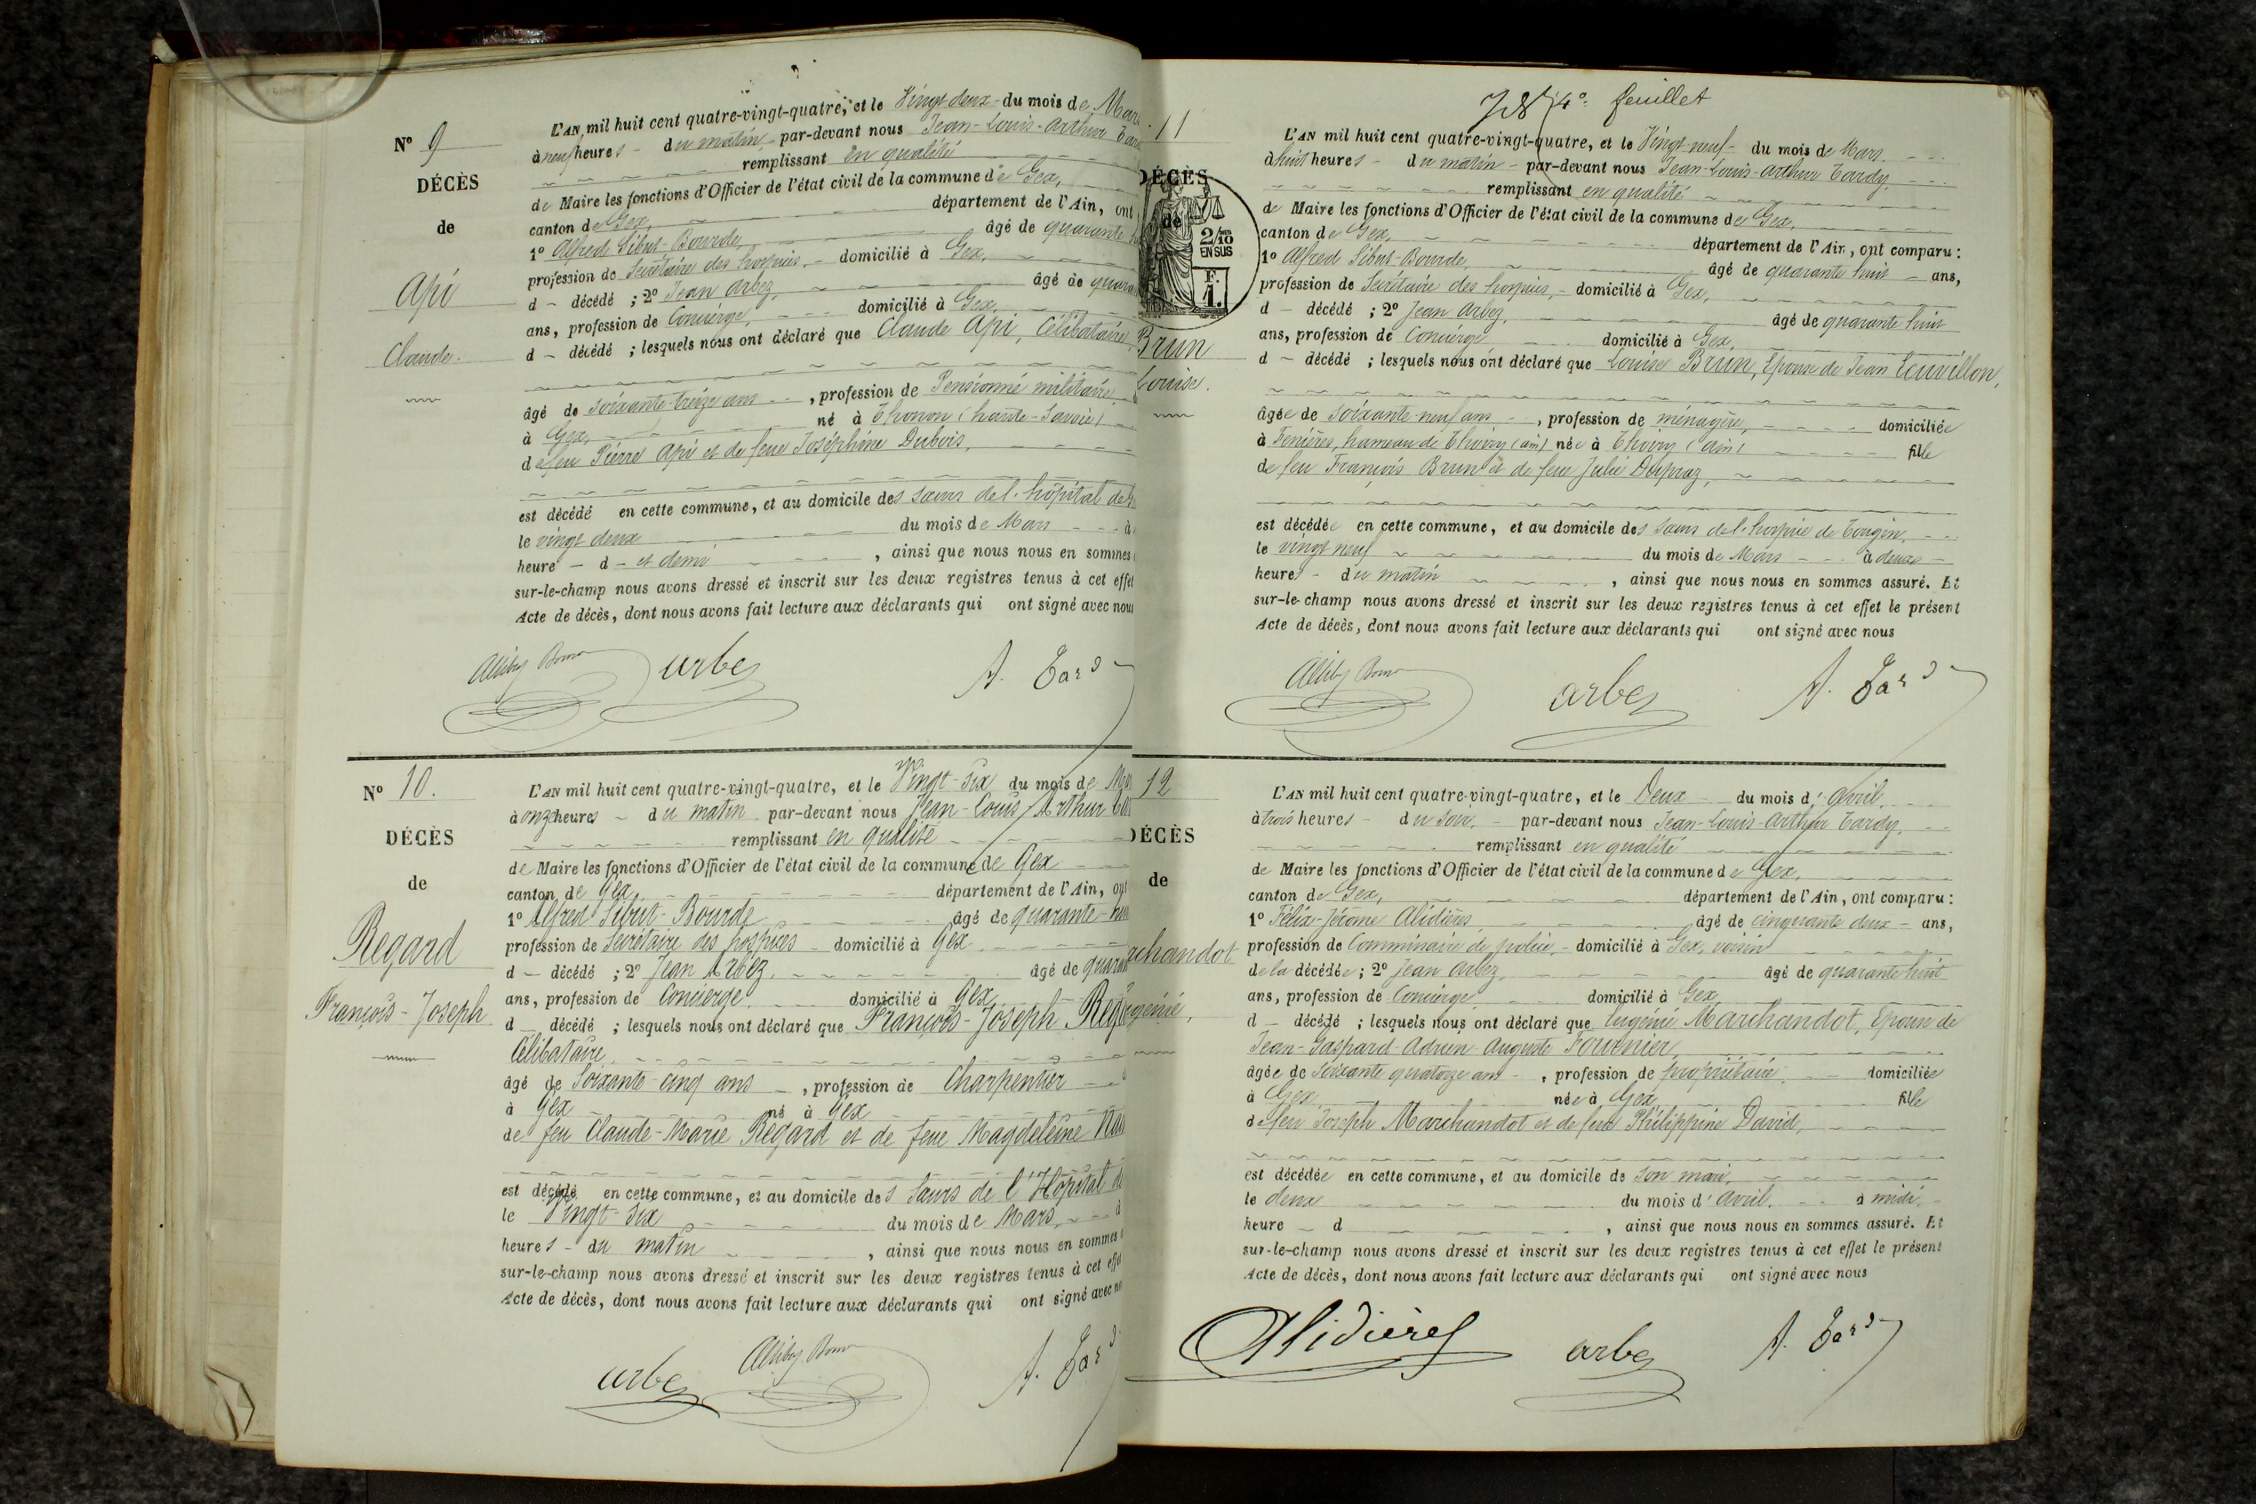 Nº 9
DÉCÈS
de
Api
Claude.
L'AN mil huit cent quatre-vingt-quatre, et le Vingt-deux du mois de Mars
à neuf heures du matin, par-devant nous Jean-Louis-Arthur
remplissant en qualité
de Maire les fonctions d'Officier de l'état civil de la commune de Gex,
canton de Gex, département de l'Ain, ont
1º Alfred Sibut-Bourde, âgé de quarante
profession de Secrétaire des hospices, domicilié à Gex,
d décédé ; 2º Jean Arbez, âgé de
ans, profession de Concierge, domicilié à Gex,
d décédé ; lesquels nous ont déclaré que Claude Api, Célibataire,
âgé de soixante-treize ans, profession de Pensionné militaire,
à Gex, né à Thonon (haute-Savoie)
de feu Pierre Api et de feue Joséphine Dubois,
est décédé en cette commune, et au domicile des sœurs de l'hôpital de
le vingt deux du mois de Mars à
heure d et demi, ainsi que nous nous en sommes
sur-le-champ nous avons dressé et inscrit sur les deux registres tenus à cet effet
Acte de décès, dont nous avons fait lecture aux déclarants qui ont signé avec nous
arbez A. Tardy
Nº 10.
DÉCÈS
de
Regard
François-Joseph
L'AN mil huit cent quatre-vingt-quatre, et le Vingt-six du mois de
à onze heures du matin par-devant nous Jean-Louis Arthur
remplissant en qualité
de Maire les fonctions d'Officier de l'état civil de la commune de Gex
canton de Gex, département de l'Ain, ont
1º Alfred Sibut-Bourde âgé de quarante-
profession de Secrétaire des hospices domicilié à Gex
d décédé ; 2º Jean Arbez, âgé de
ans, profession de Concierge domicilié à Gex
d décédé ; lesquels nous ont déclaré que François-Joseph
Célibataire
âgé de Soixante-cinq ans, profession de Charpentier
à Gex né à Gex
de feu Claude-Marie Regard et de feue Magdeleine
est décédé en cette commune, et au domicile des Sœurs de l'Hôpital
le Vingt-six du mois de Mars,
heures du matin, ainsi que nous nous en sommes
sur-le-champ nous avons dressé et inscrit sur les deux registres tenus à cet effet
Acte de décès, dont nous avons fait lecture aux déclarants qui ont signé avec
arbez A. Tardy
4º feuillet
11
DÉCÈS
de
2/10
EN SUS
F.
1.
Brun
Louise.
L'AN mil huit cent quatre-vingt-quatre, et le Vingt-neuf du mois de Mars.
à huit heures du matin par-devant nous Jean-Louis-Arthur Tardy,
remplissant en qualité
de Maire les fonctions d'Officier de l'état civil de la commune de Gex,
canton de Gex, département de l'Ain, ont comparu :
1º Alfred Sibut-Bourde, âgé de quarante huit ans,
profession de Secrétaire des hospices, domicilié à Gex,
d décédé ; 2º Jean Arbez, âgé de quarante huit
ans, profession de Concierge domicilié à Gex,
d décédé ; lesquels nous ont déclaré que Louise Brun, Epouse de Jean Touvillon,
âgée de soixante-neuf ans, profession de ménagère, domiciliée
à Fenières, hameau de Thoiry (ain) née à Thoiry (ain) fille
de feu François Brun et de feue Julie Dupraz,
est décédée en cette commune, et au domicile des sœurs de l'hospice de Tougin,
le vingt neuf du mois de Mars à deux
heures du matin, ainsi que nous nous en sommes assuré. Et
sur-le-champ nous avons dressé et inscrit sur les deux registres tenus à cet effet le présent
Acte de décès, dont nous avons fait lecture aux déclarants qui ont signé avec nous
arbez A. Tardy
12
DÉCÈS
de
L'AN mil huit cent quatre-vingt-quatre, et le Deux du mois d'avril.
à trois heures du soir, par-devant nous Jean-Louis-Arthur Tardy,
remplissant en qualité
de Maire les fonctions d'Officier de l'état civil de la commune de Gex,
canton de Gex, département de l'Ain, ont comparu :
1º Félix-Jérôme Alidières, âgé de cinquante deux ans,
profession de Commissaire de police, domicilié à Gex, voisin
de la décédée ; 2º Jean Arbez, âgé de quarante huit
ans, profession de Concierge domicilié à Gex
d décédé ; lesquels nous ont déclaré que Eugénie Marchandot, Epouse de
Jean-Gaspard-Adrien-Auguste Fournier,
âgée de soixante quatorze ans, profession de propriétaire domiciliée
à Gex née à Gex fille
de feu Joseph Marchandot et de feue Philippine David,
est décédée en cette commune, et au domicile de son mari,
le deux du mois d'avril. à midi,
heure d, ainsi que nous nous en sommes assuré. Et
sur-le-champ nous avons dressé et inscrit sur les deux registres tenus à cet effet le présent
Acte de décès, dont nous avons fait lecture aux déclarants qui ont signé avec nous
Alidières arbez A. Tardy